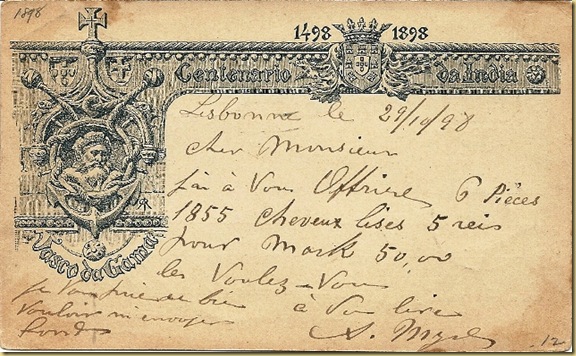 1898
1498 1898
Centenario da India
Vasco da Gama
Lisbonne le 29/10/98
Cher Monsieur
j'ai à Vous Offrire 6 Pièces
1855 cheveux lises 5 reis
pour Mark 50,00
les Voulez-Vous
à Vous lire
je Vous prie de bien
Vouloir m'envoyer
fonds
.12